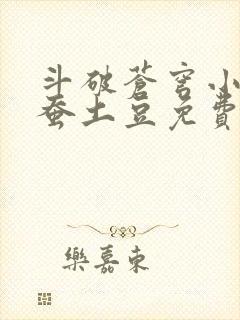 斗破蒼穹小
蚕土豆免費
樂嘉東